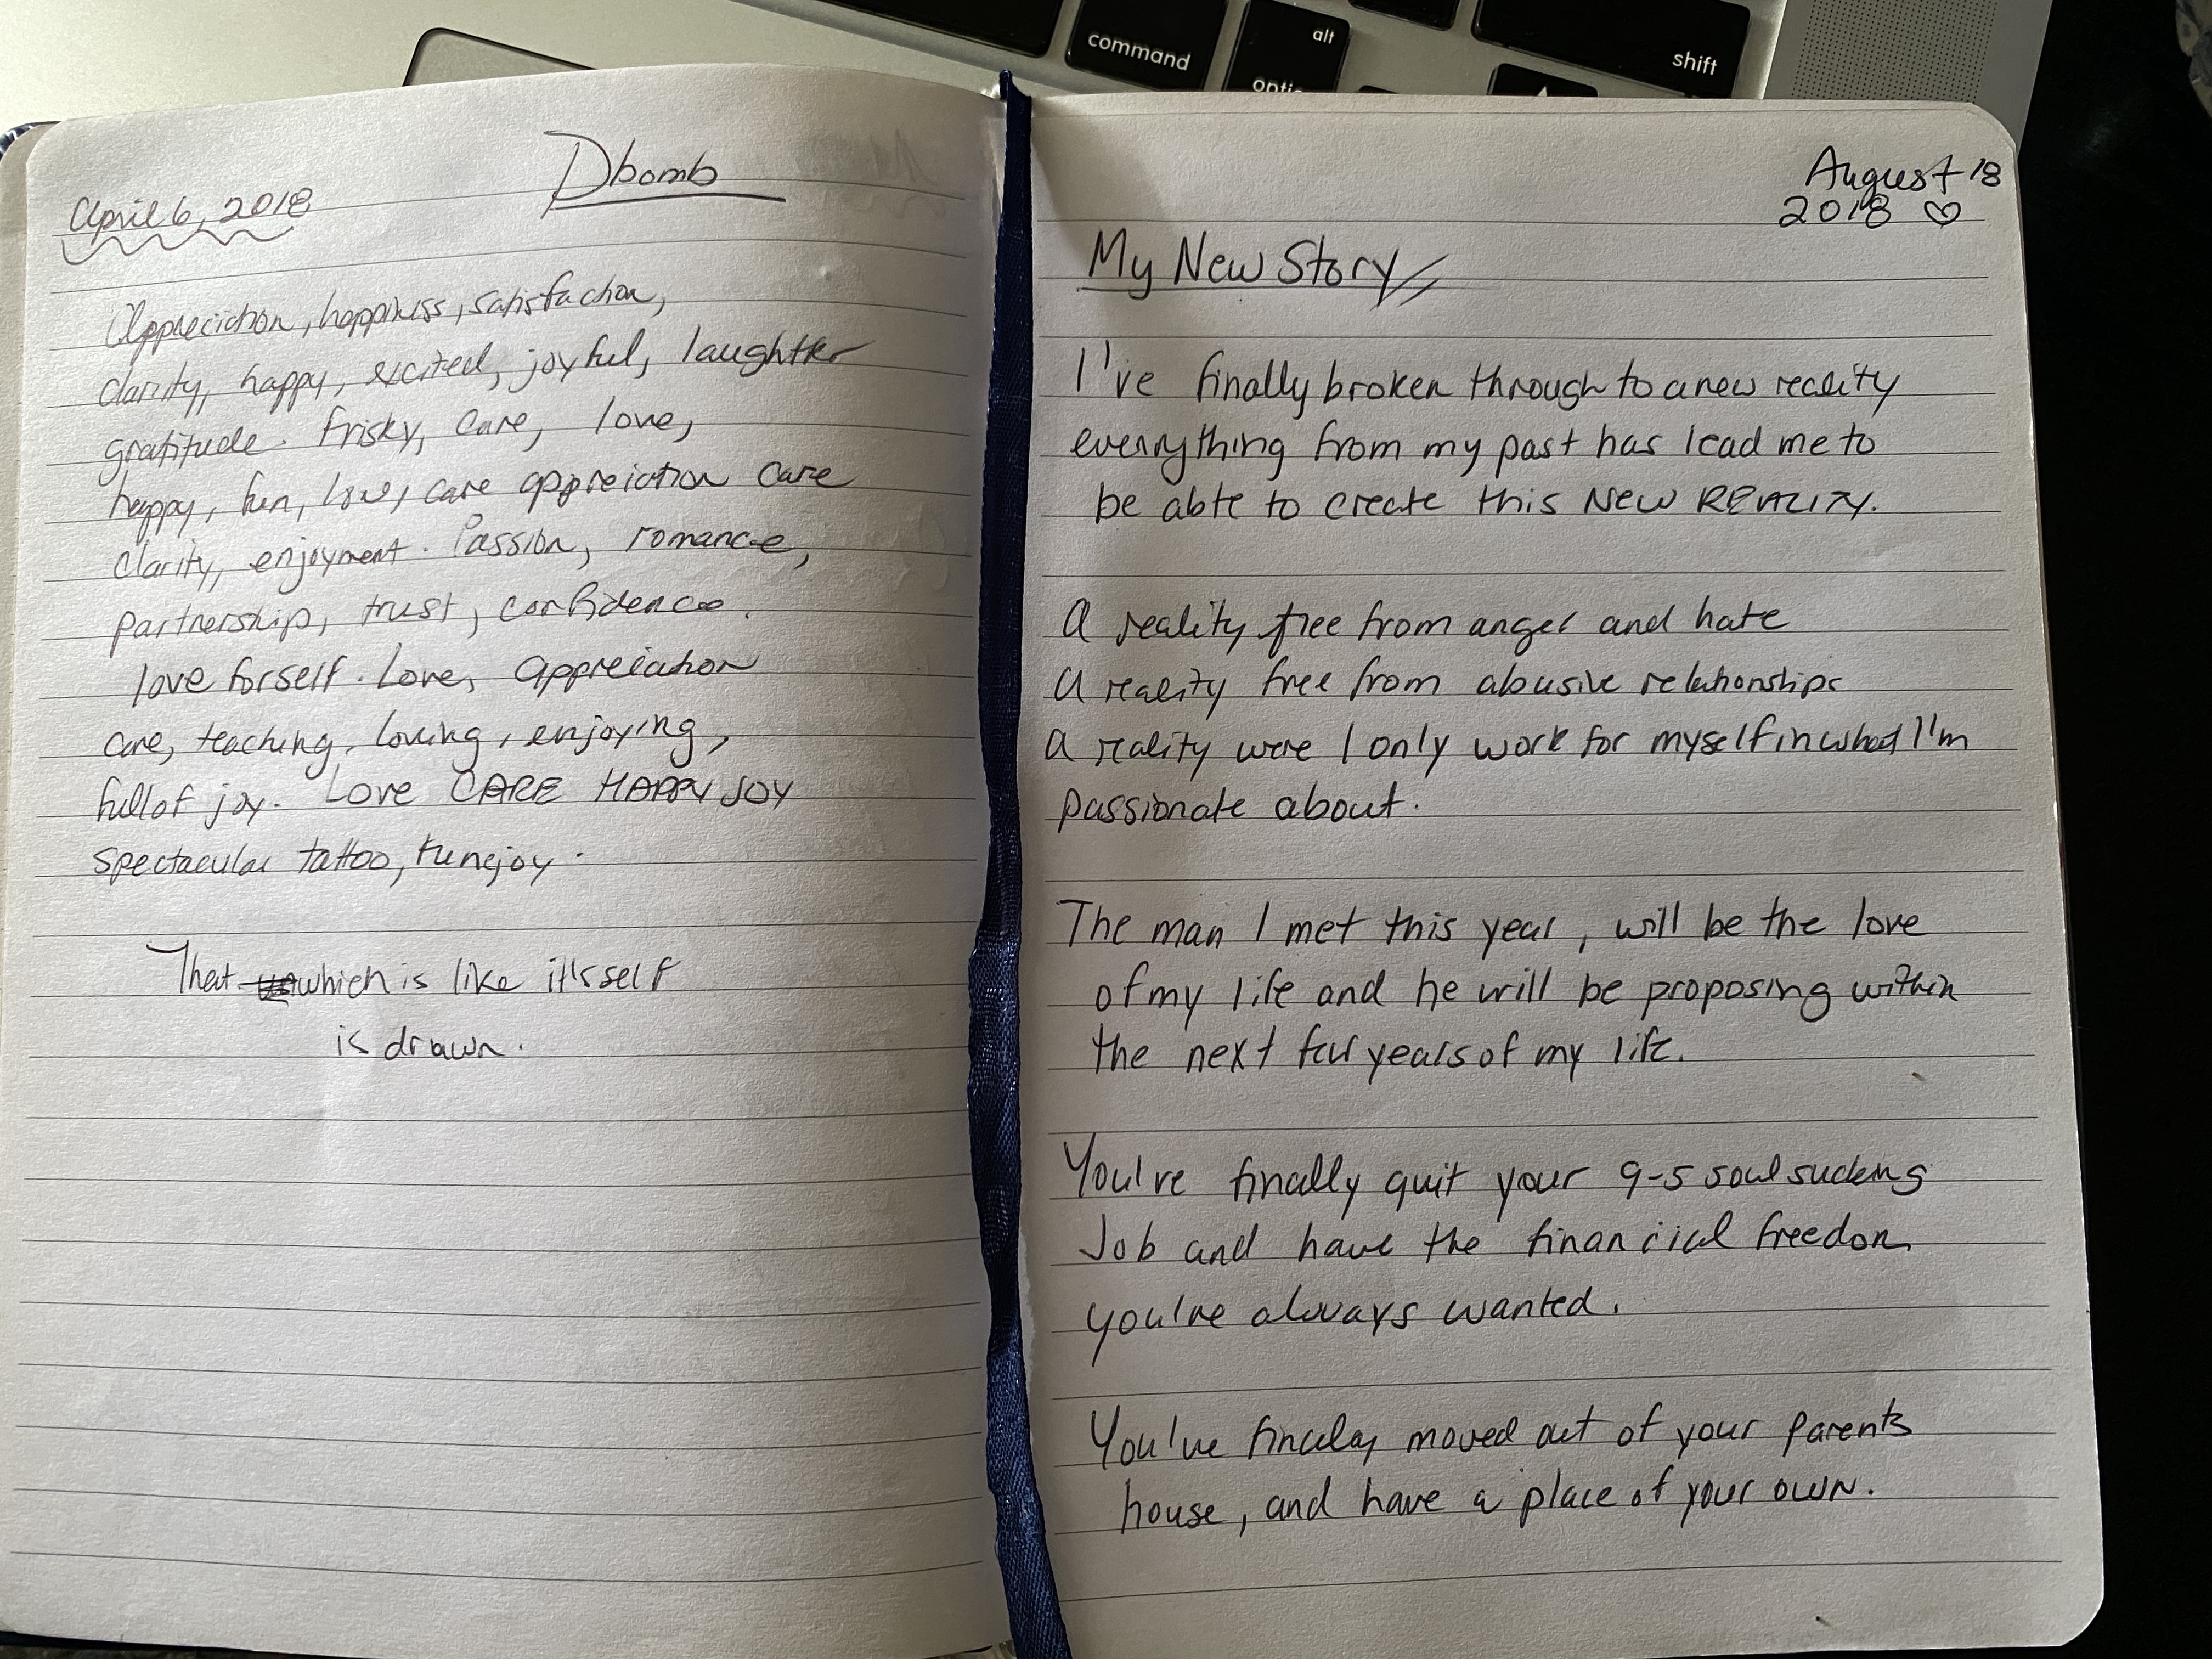 command
alt
option
shift
Dbomb
April 6, 2018
Appreciction, happiness, satisfaction,
clarity, happy, excited, joyful, laughtter
gratitude. frisky, care, love,
happy, fun, love, care appreiction care
clarity, enjoyment. Passion, romance,
partnership, trust, confidence.
love for self. Love, appreiation
care, teaching, loving, enjoying,
full of joy. LOVE CARE HAPPY JOY
spectacular tattoo, funejoy.
That which is like it'sself
is drawn.
August 18
2018 ♡
My New Story
I've finally broken through to a new reality
everything from my past has lead me to
be able to create this NEW REALITY.
A reality free from anger and hate
A reality free from abusive relationships
A reality were I only work for myself in what I'm
passionate about.
The man I met this year, will be the love
of my life and he will be proposing within
the next few years of my life.
You've finally quit your 9-5 soul sucking
Job and have the financial freedom
you've always wanted.
You've finally moved out of your parents
house, and have a place of your own.